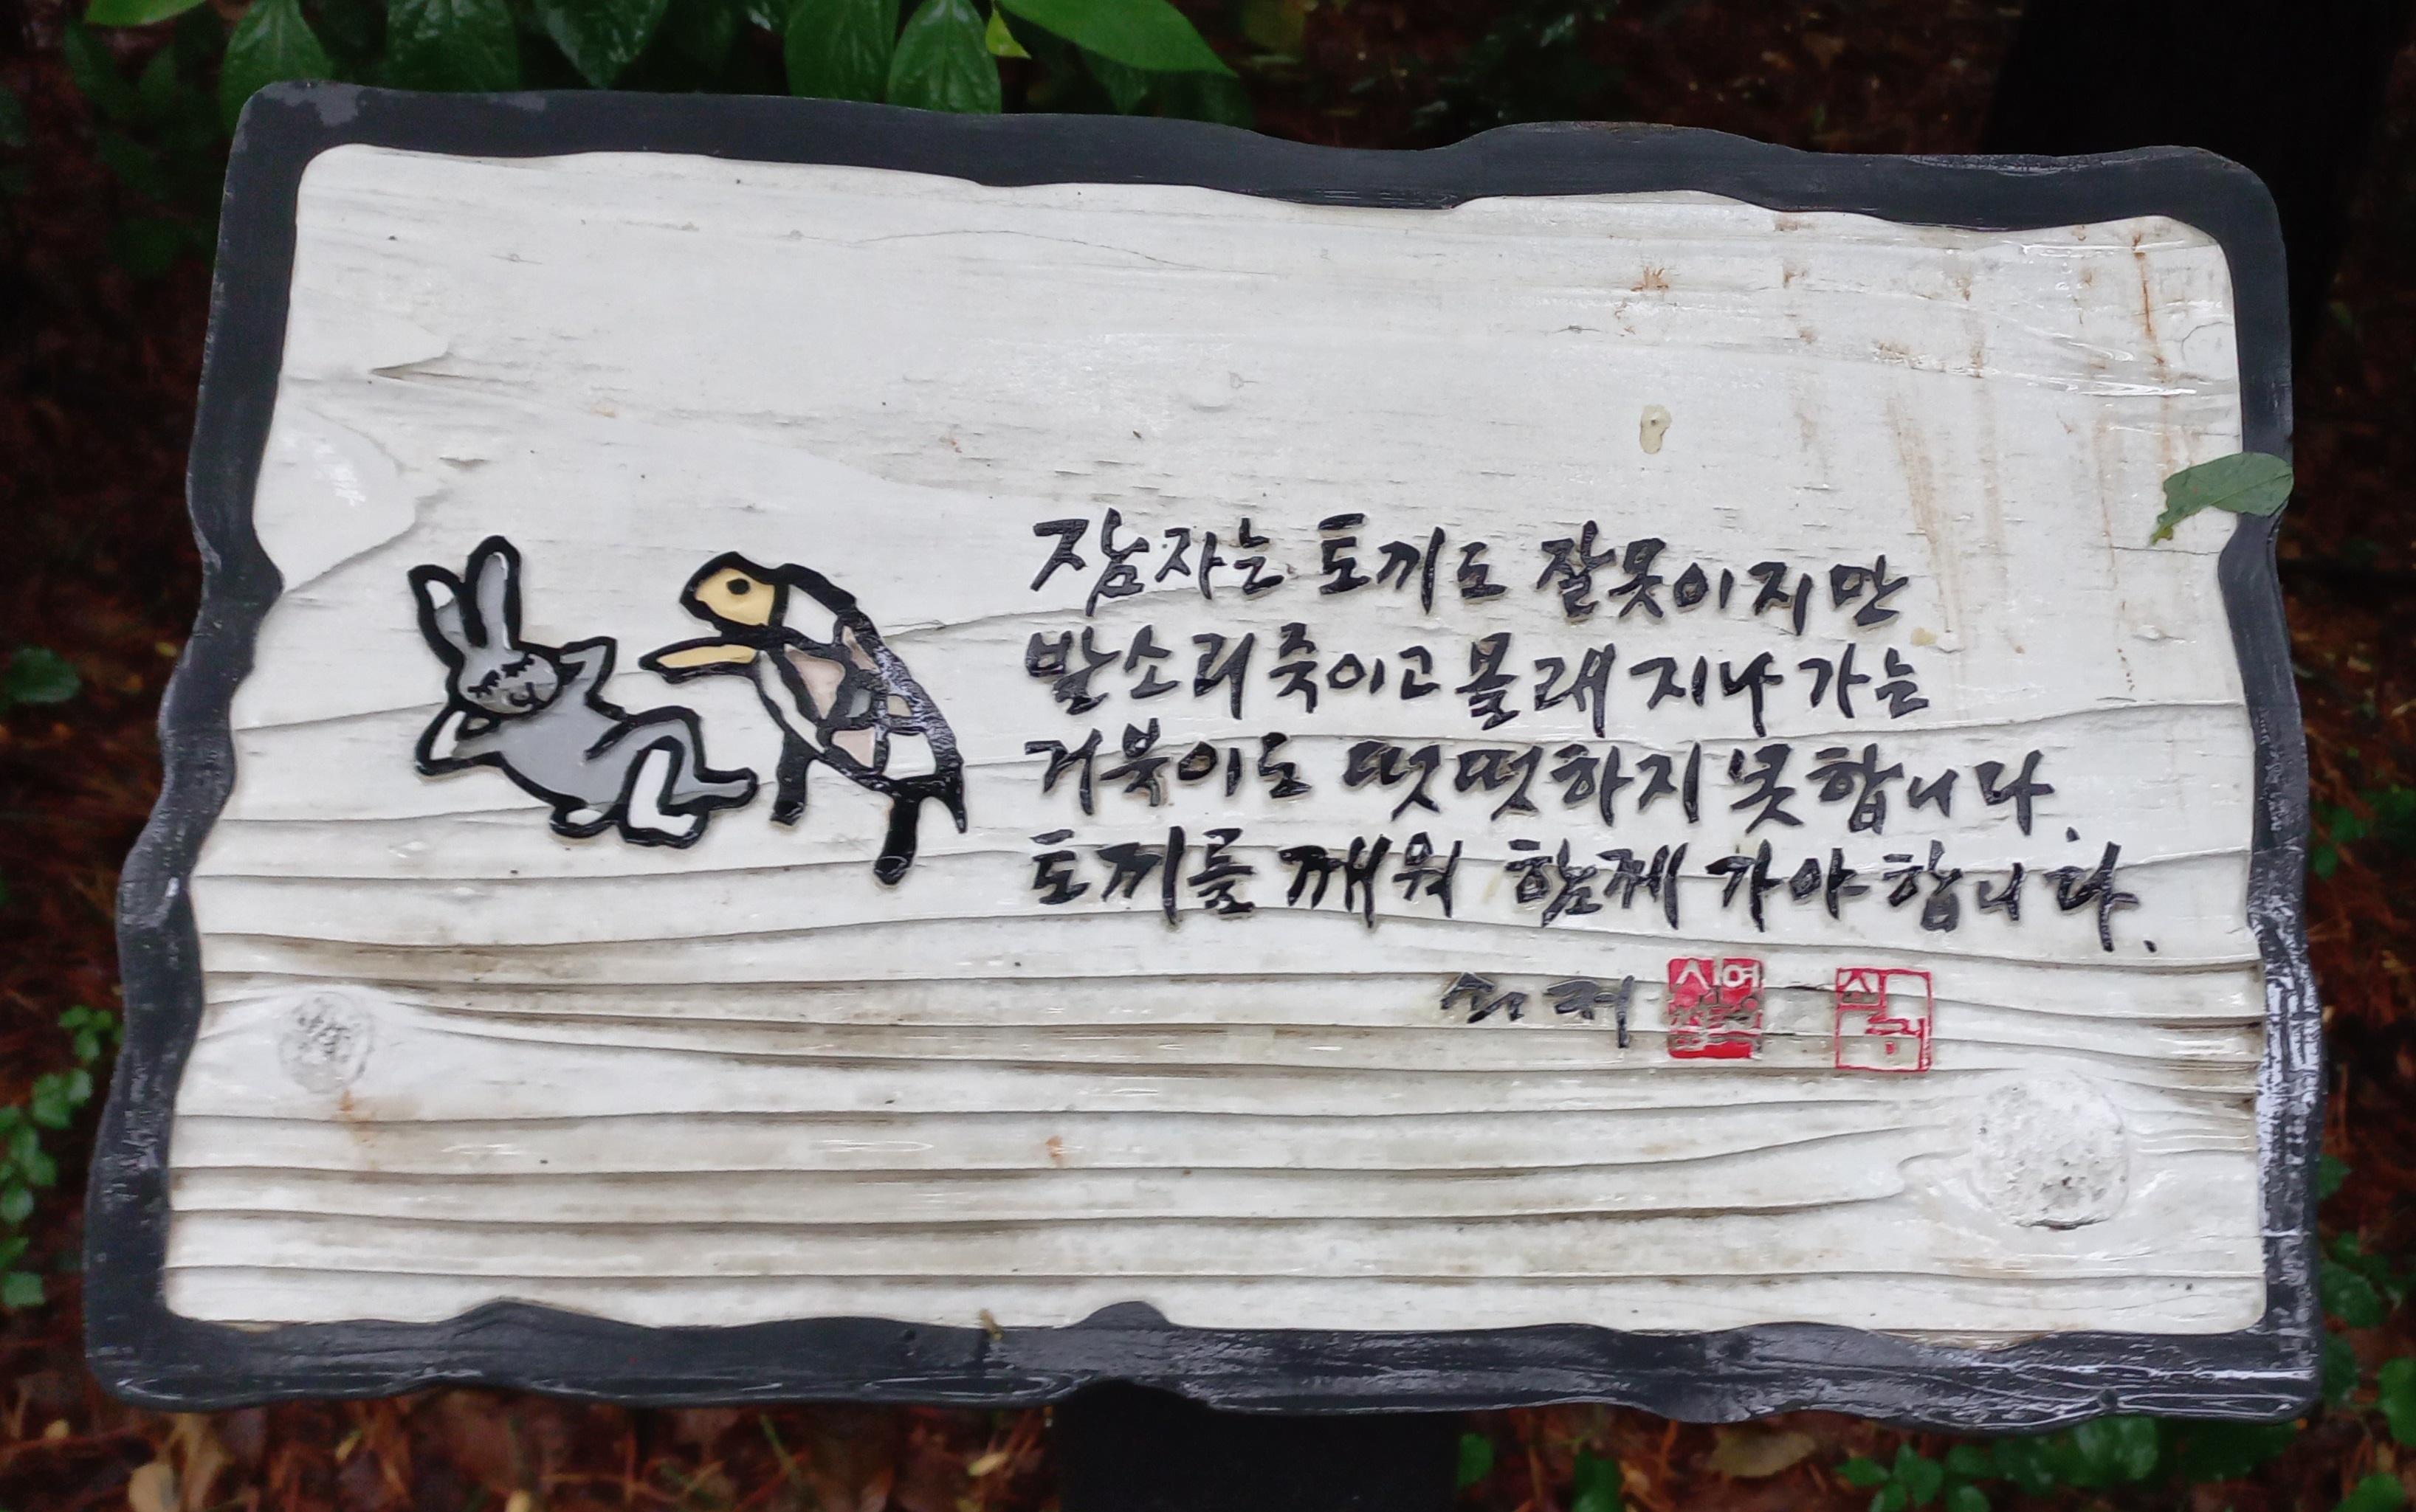 잠자는 토끼도 잘못이지만
발소리 죽이고 몰래 지나가는
거북이도 떳떳하지 못합니다.
토끼를 깨워 함께 가야합니다.
쇠귀